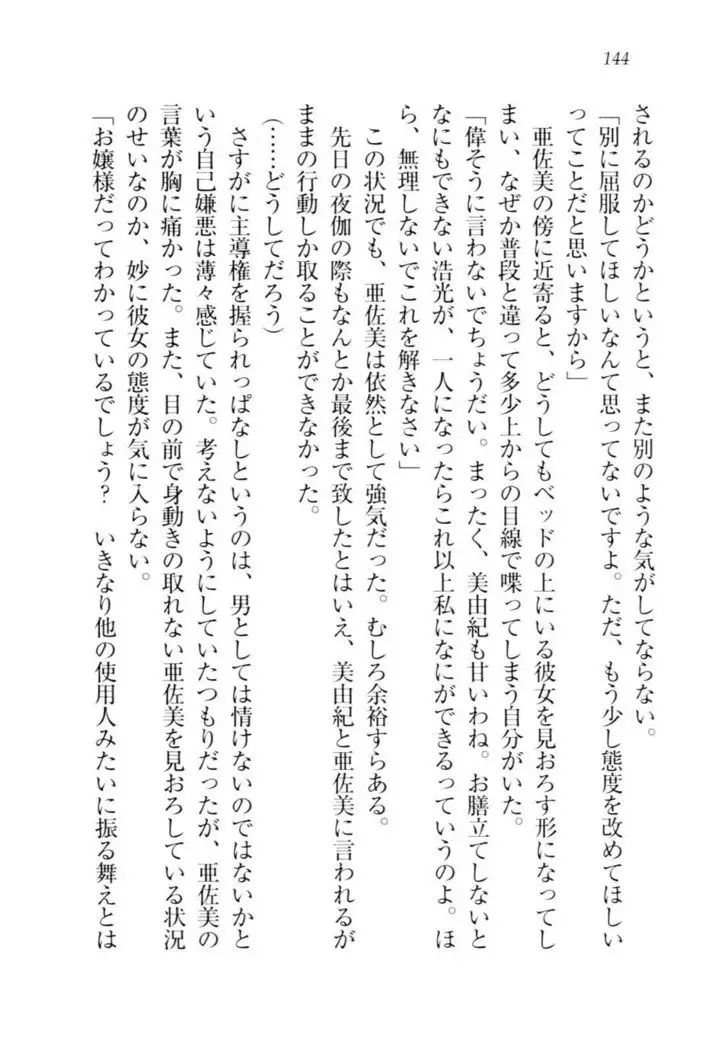 144
されるのかどうかというと、また別のような気がしてならない。
「別に屈服してほしいなんて思ってないですよ。ただ、もう少し態度を改めてほしい
ってことだと思いますから」
亜佐美の傍に近寄ると、どうしてもベッドの上にいる彼女を見おろす形になってし
まい、なぜか普段と違って多少上からの目線で喋ってしまう自分がいた。
「偉そうに言わないでちょうだい。まったく、美由紀も甘いわね。お膳立てしないと
なにもできない浩光が、一人になったらこれ以上私になにができるっていうのよ。ほ
ら、無理しないでこれを解きなさい」
この状況でも、亜佐美は依然として強気だった。むしろ余裕すらある。
先日の夜伽の際もなんとか最後まで致したとはいえ、美由紀と亜佐美に言われるが
ままの行動しか取ることができなかった。
(……どうしてだろう)
さすがに主導権を握られっぱなしというのは、男としては情けないのではないかと
いう自己嫌悪は薄々感じていた。考えないようにしていたつもりだったが、亜佐美の
言葉が胸に痛かった。また、目の前で身動きの取れない亜佐美を見おろしている状況
のせいなのか、妙に彼女の態度が気に入らない。
「お嬢様だってわかっているでしょう？　いきなり他の使用人みたいに振る舞えとは